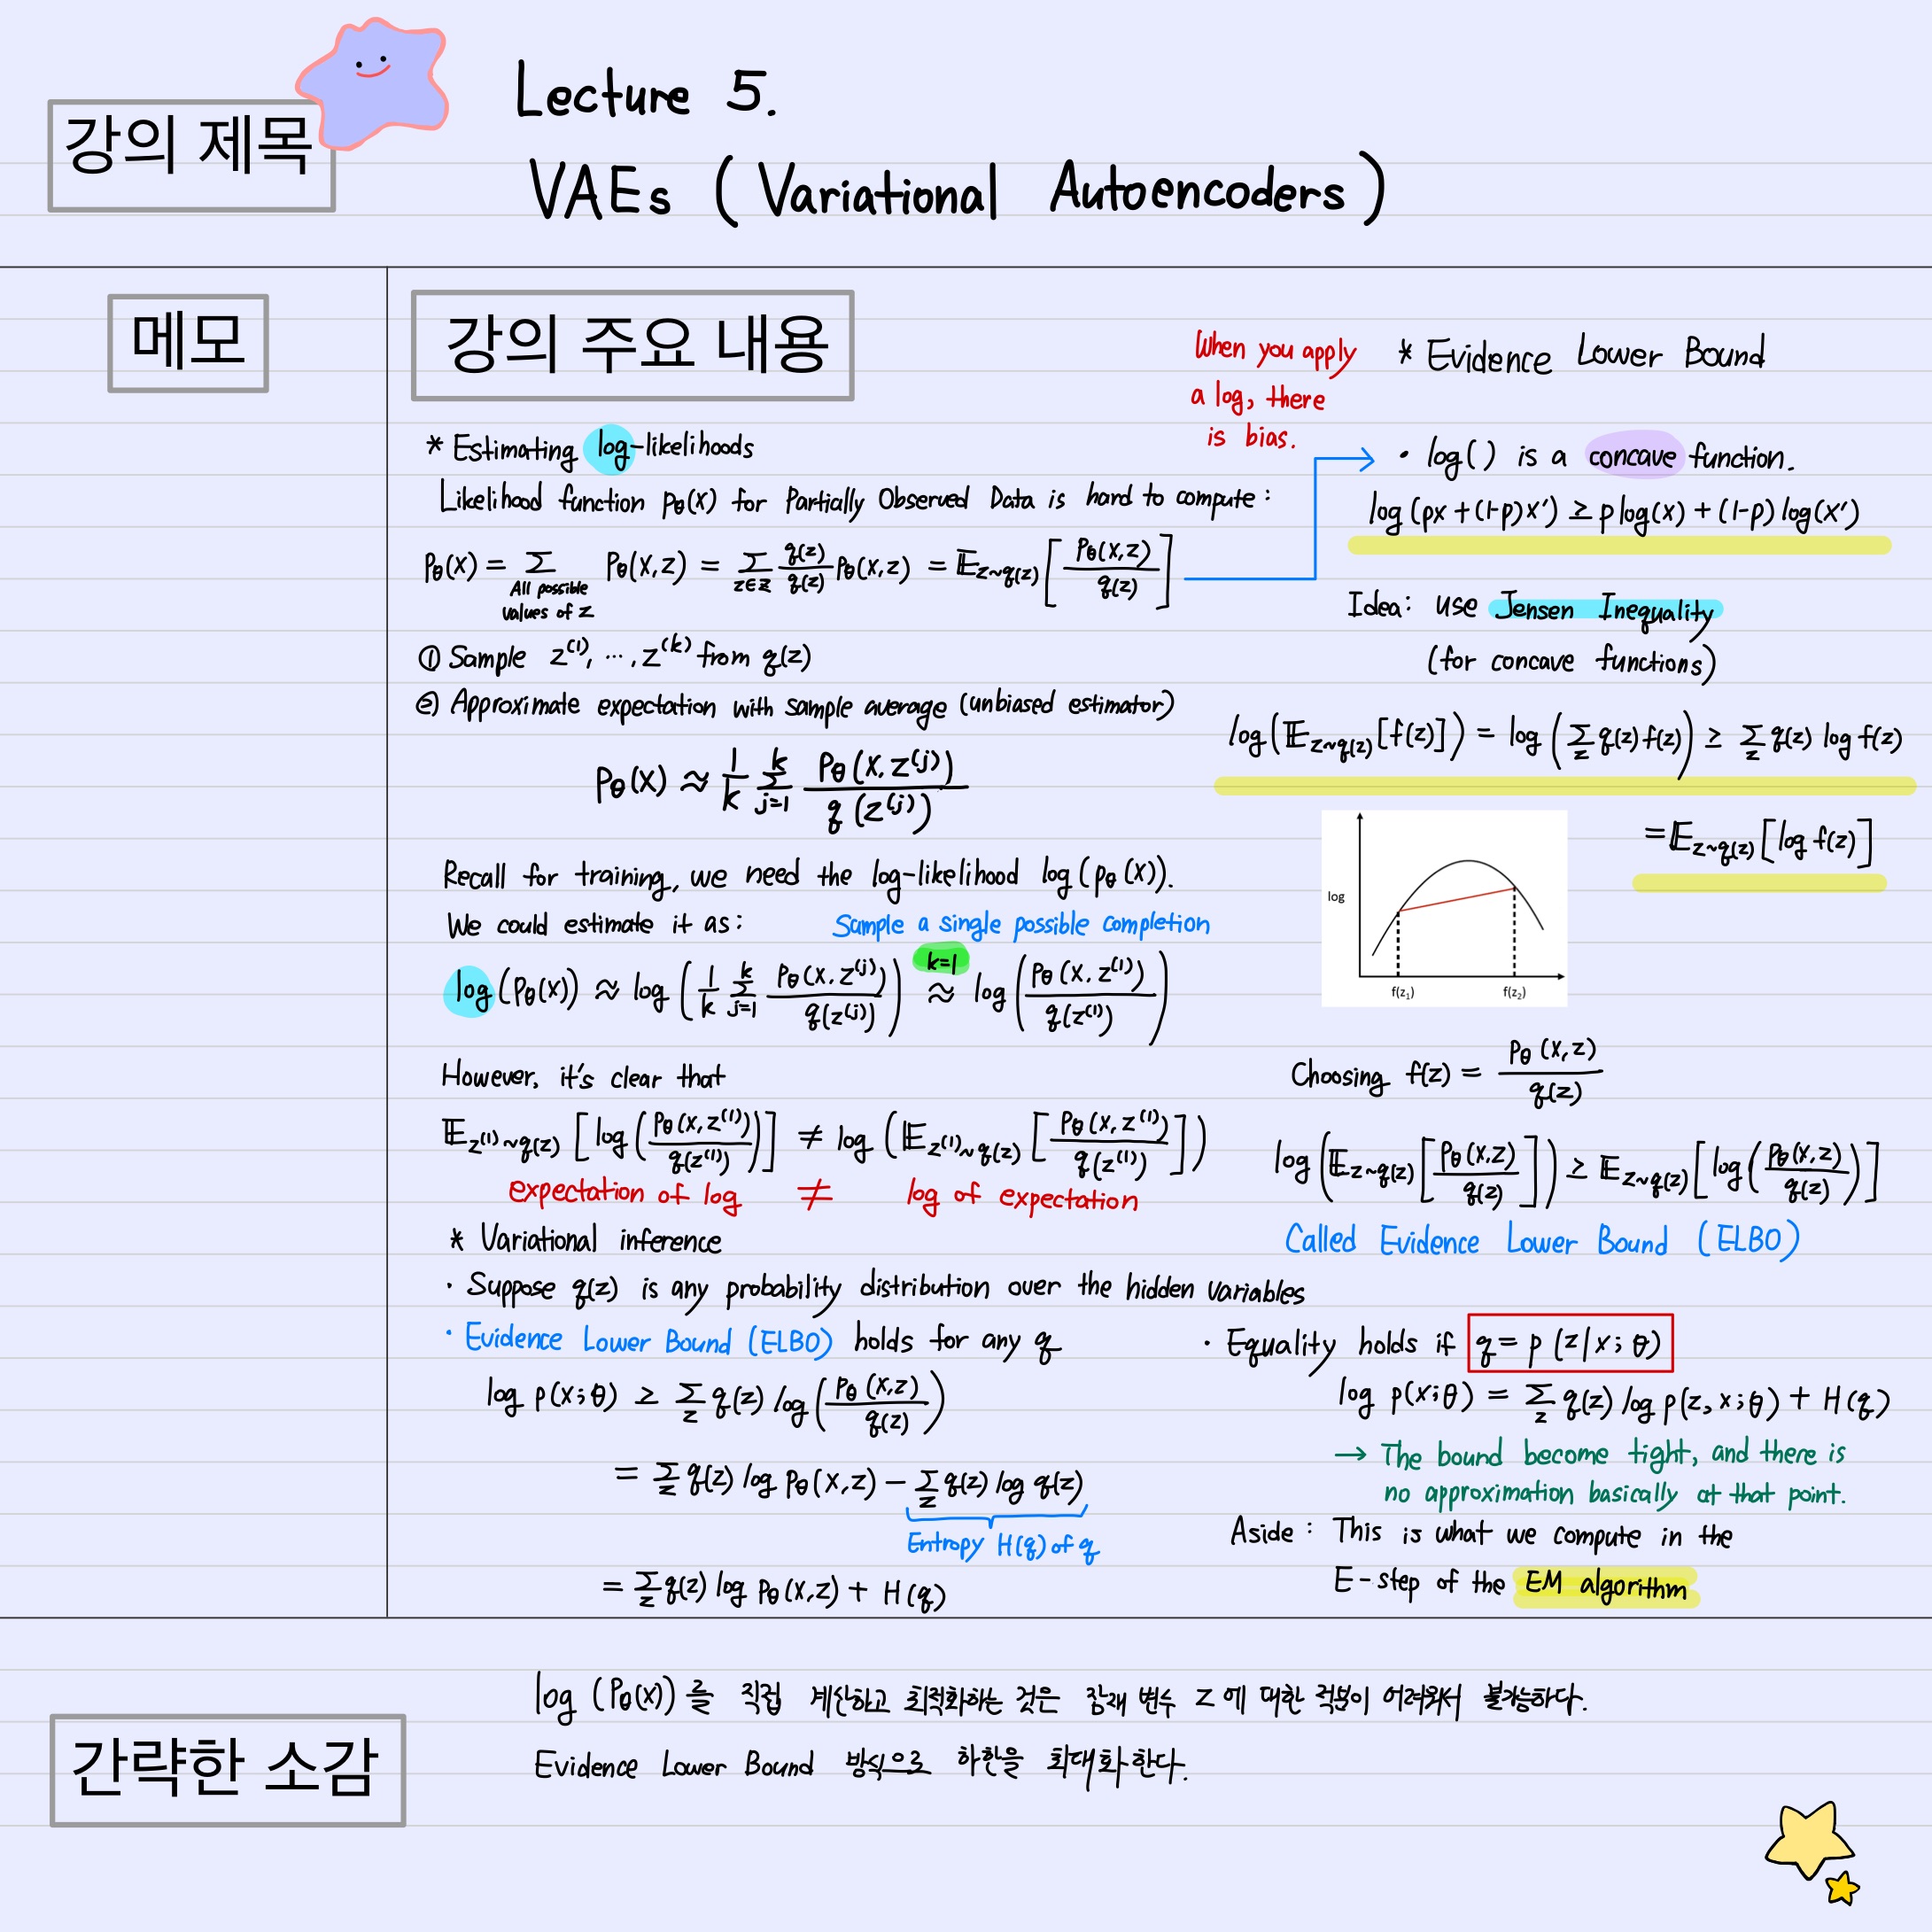 강의 제목
Lecture 5.
VAEs (Variational Autoencoders)
메모
강의 주요 내용
* Estimating log-likelihoods
Likelihood function pθ(x) for Partially Observed Data is hard to compute :
Pθ(x) = Σ Pθ(x,z) = Σ_{z∈Z} q(z)/q(z) Pθ(x,z) = 𝔼_{z~q(z)} [ Pθ(x,z) / q(z) ]
All possible
values of z
① Sample z⁽¹⁾, ⋯, z⁽ᵏ⁾ from q(z)
② Approximate expectation with sample average (unbiased estimator)
Pθ(x) ≈ 1/k Σ_{j=1}^{k} Pθ(x, z⁽ʲ⁾) / q(z⁽ʲ⁾)
Recall for training, we need the log-likelihood log(pθ(x)).
We could estimate it as :
Sample a single possible completion
k=1
log(Pθ(x)) ≈ log( 1/k Σ_{j=1}^{k} Pθ(x, z⁽ʲ⁾) / q(z⁽ʲ⁾) ) ≈ log( Pθ(x, z⁽¹⁾) / q(z⁽¹⁾) )
However, it's clear that
𝔼_{z⁽¹⁾~q(z)} [ log( Pθ(x,z⁽¹⁾) / q(z⁽¹⁾) ) ] ≠ log( 𝔼_{z⁽¹⁾~q(z)} [ Pθ(x,z⁽¹⁾) / q(z⁽¹⁾) ] )
expectation of log ≠ log of expectation
* Variational inference
· Suppose q(z) is any probability distribution over the hidden variables
· Evidence Lower Bound (ELBO) holds for any q
log p(x;θ) ≥ Σ_z q(z) log( Pθ(x,z) / q(z) )
= Σ_z q(z) log Pθ(x,z) − Σ_z q(z) log q(z)
Entropy H(q) of q
= Σ_z q(z) log Pθ(x,z) + H(q)
When you apply
a log, there
is bias.
* Evidence Lower Bound
· log( ) is a concave function.
log(px+(1-p)x′) ≥ p log(x) + (1-p) log(x′)
Idea: use Jensen Inequality
(for concave functions)
log(𝔼_{z~q(z)} [f(z)]) = log( Σ_z q(z) f(z) ) ≥ Σ_z q(z) log f(z)
= 𝔼_{z~q(z)} [log f(z)]
log
f(z₁) f(z₂)
Choosing f(z) = Pθ(x,z) / q(z)
log( 𝔼_{z~q(z)} [ Pθ(x,z) / q(z) ] ) ≥ 𝔼_{z~q(z)} [ log( Pθ(x,z) / q(z) ) ]
Called Evidence Lower Bound (ELBO)
· Equality holds if q = p(z|x;θ)
log p(x;θ) = Σ_z q(z) log p(z,x;θ) + H(q)
→ The bound become tight, and there is
no approximation basically at that point.
Aside : This is what we compute in the
E-step of the EM algorithm
간략한 소감
log (Pθ(x)) 를 직접 계산하고 최적화하는 것은 잠재 변수 z 에 대한 적분이 어려워서 불가능하다.
Evidence Lower Bound 방식으로 하한을 최대화한다.